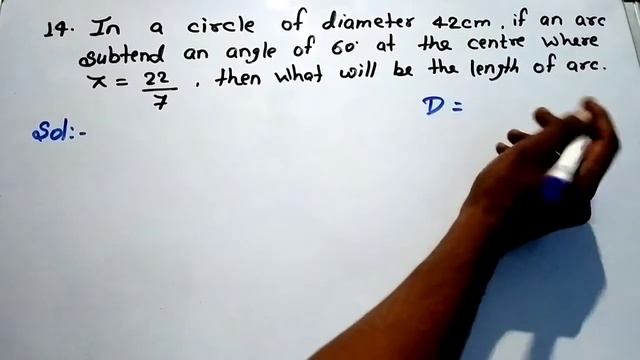 14. In a circle of diameter 42cm, if an arc
subtend an angle of 60° at the centre where
π = 22/7, then what will be the length of arc.
D =
Sol:-